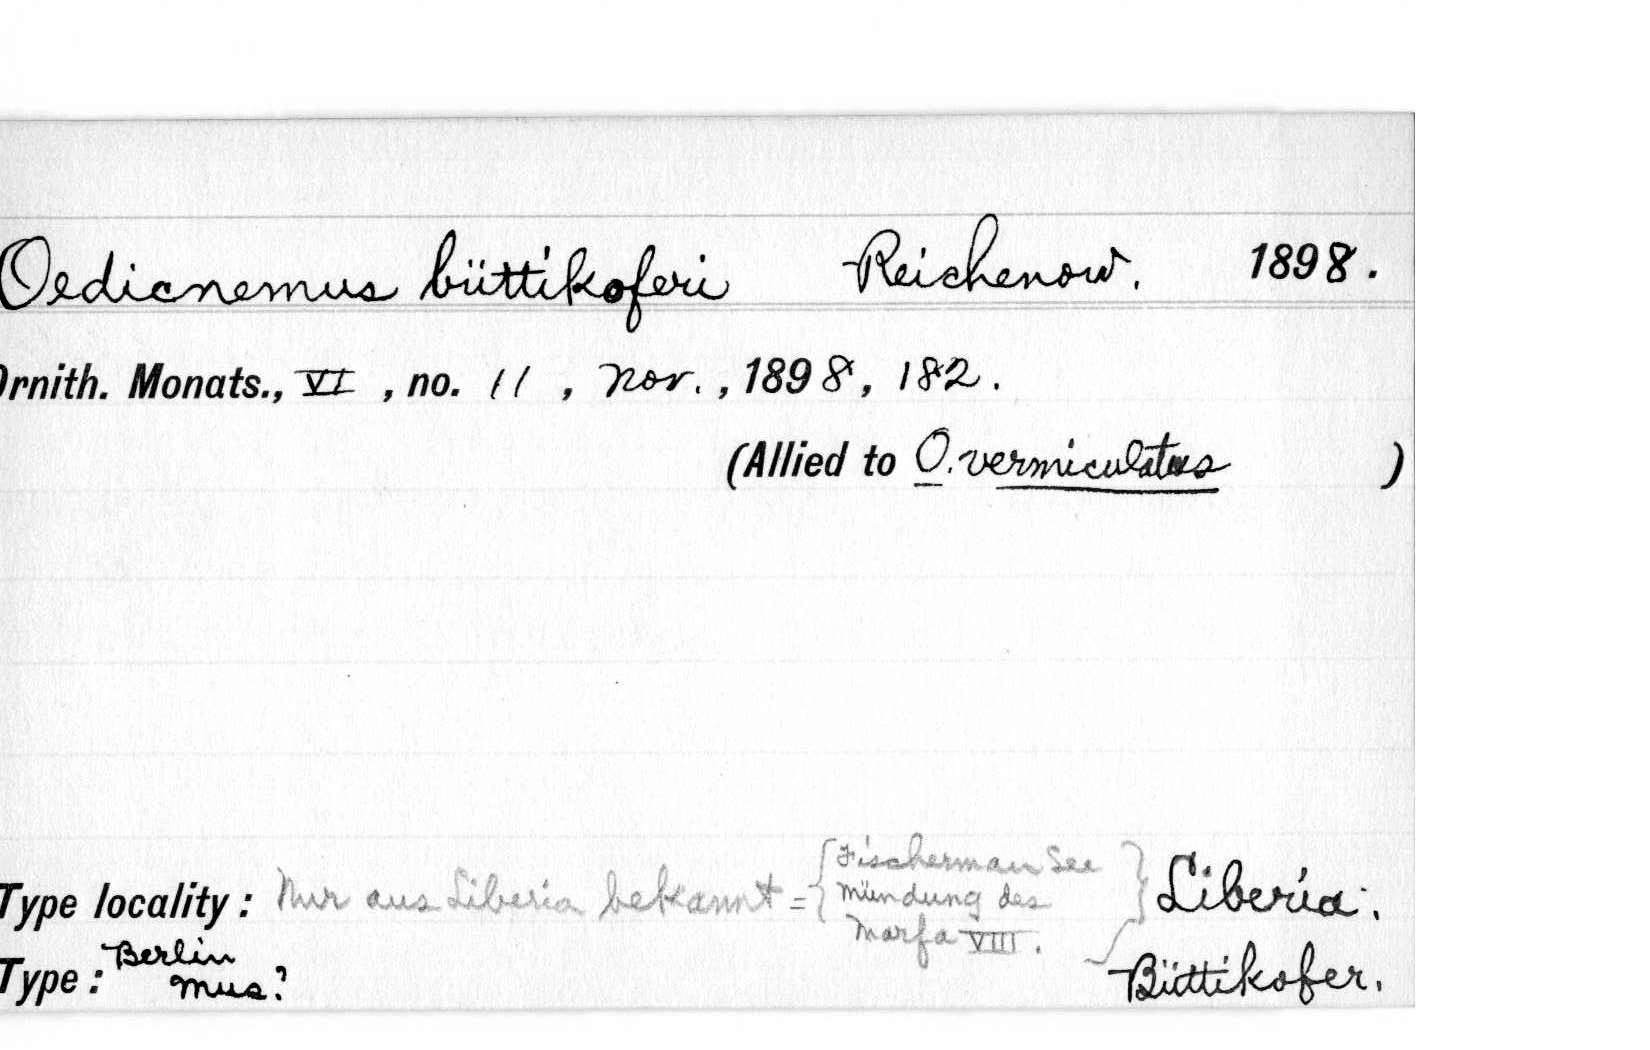 Oedicnemus büttikoferi Reichenow. 1898.
Ornith. Monats., VI, no. 11, Nov., 1898, 182.
(Allied to O. vermiculatus )
Type locality: Nur aus Liberia bekannt = { Fischerman See
Mündung des
Marfa VIII. } Liberia.
Type: Berlin
Mus? Büttikofer.